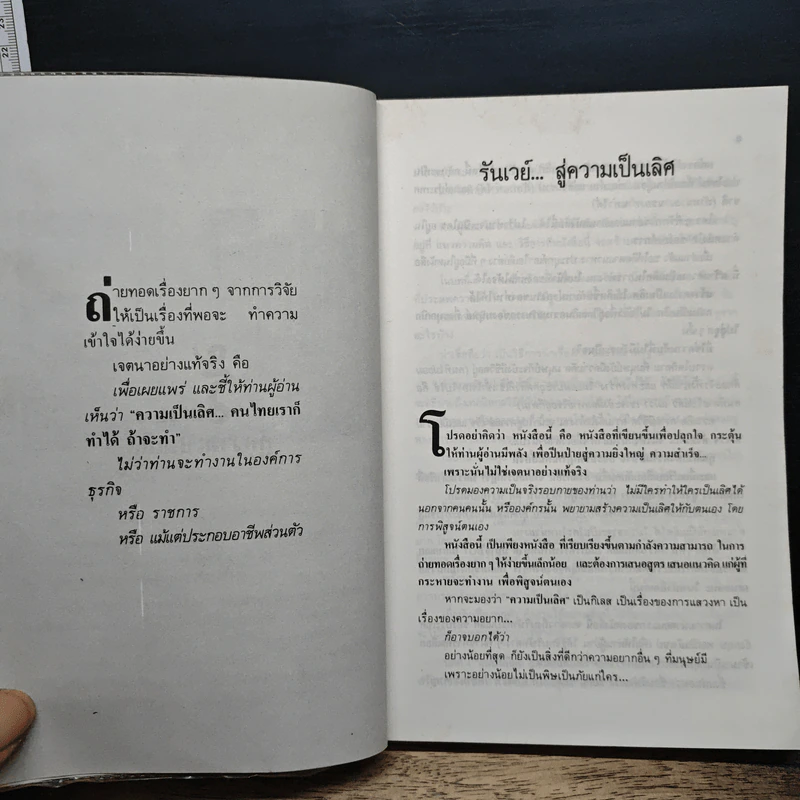 23
22
ถ่ายทอดเรื่องยาก ๆ จากการวิจัย
ให้เป็นเรื่องที่พอจะ ทำความ
เข้าใจได้ง่ายขึ้น
เจตนาอย่างแท้จริง คือ
เพื่อเผยแพร่ และชี้ให้ท่านผู้อ่าน
เห็นว่า "ความเป็นเลิศ... คนไทยเราก็
ทำได้ ถ้าจะทำ"
ไม่ว่าท่านจะทำงานในองค์การ
ธุรกิจ
หรือ ราชการ
หรือ แม้แต่ประกอบอาชีพส่วนตัว
รันเวย์... สู่ความเป็นเลิศ
โปรดอย่าคิดว่า หนังสือนี้ คือ หนังสือที่เขียนขึ้นเพื่อปลุกใจ กระตุ้น
ให้ท่านผู้อ่านมีพลัง เพื่อปีนป่ายสู่ความยิ่งใหญ่ ความสำเร็จ...
เพราะนั่นไม่ใช่เจตนาอย่างแท้จริง
โปรดมองความเป็นจริงรอบกายของท่านว่า ไม่มีใครทำให้ใครเป็นเลิศได้
นอกจากคนคนนั้น หรือองค์กรนั้น พยายามสร้างความเป็นเลิศให้กับตนเอง โดย
การพิสูจน์ตนเอง
หนังสือนี้ เป็นเพียงหนังสือ ที่เรียบเรียงขึ้นตามกำลังความสามารถ ในการ
ถ่ายทอดเรื่องยาก ๆ ให้ง่ายขึ้นเล็กน้อย และต้องการเสนอสูตร เสนอแนวคิด แก่ผู้ที่
กระหายจะทำงาน เพื่อพิสูจน์ตนเอง
หากจะมองว่า "ความเป็นเลิศ" เป็นกิเลส เป็นเรื่องของการแสวงหา เป็น
เรื่องของความอยาก...
ก็อาจบอกได้ว่า
อย่างน้อยที่สุด ก็ยังเป็นสิ่งที่ดีกว่าความอยากอื่น ๆ ที่มนุษย์มี
เพราะอย่างน้อยไม่เป็นพิษเป็นภัยแก่ใคร...